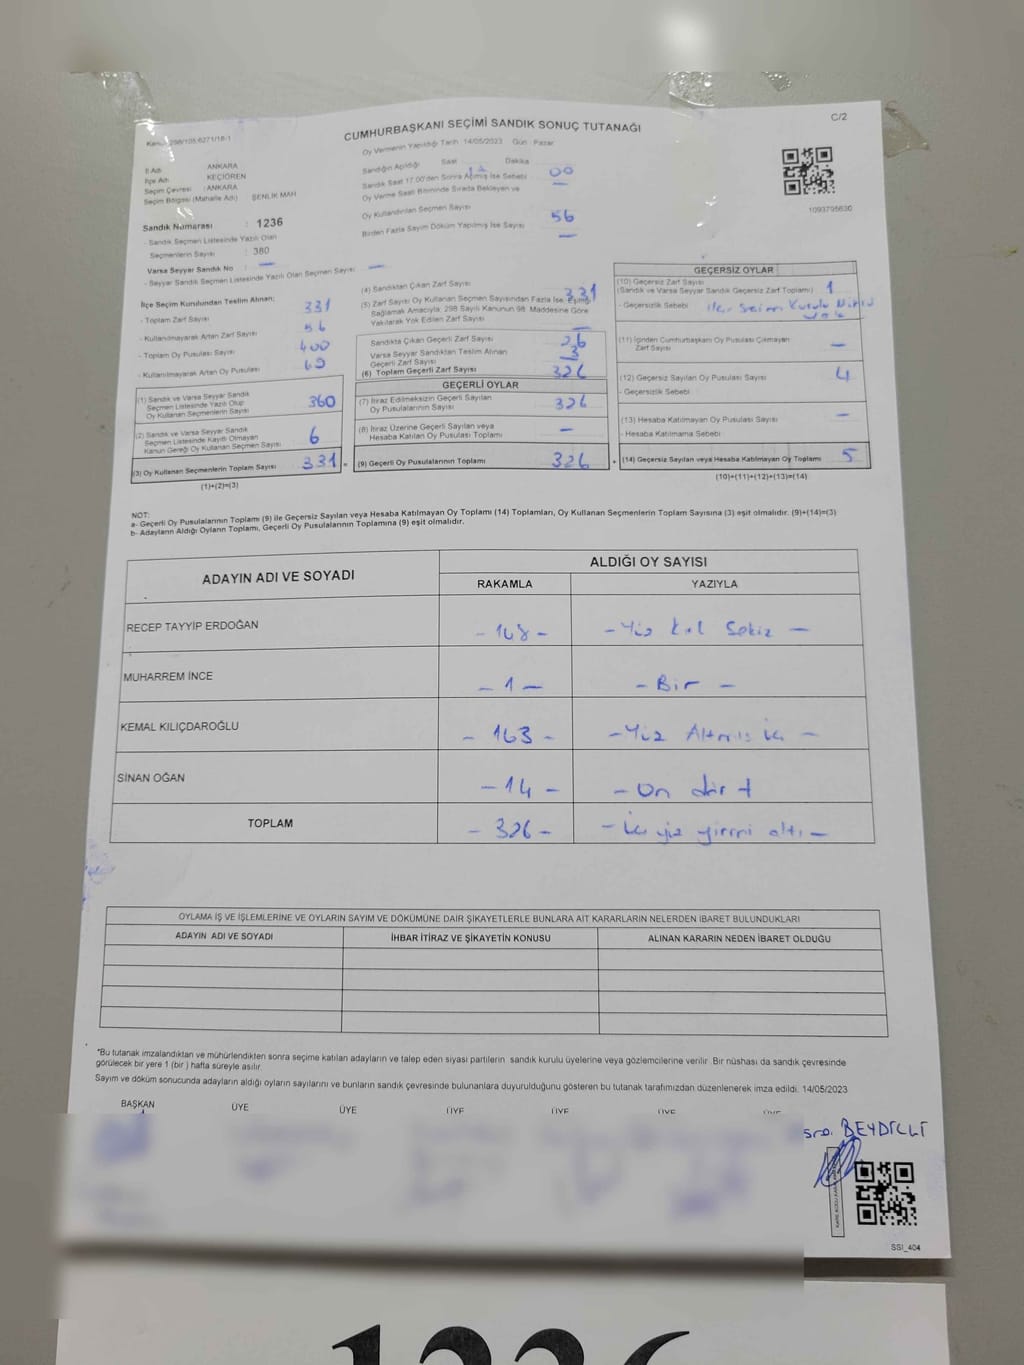 CUMHURBAŞKANI SEÇİMİ SANDIK SONUÇ TUTANAĞI
C/2
Oy Vermenin Yapıldığı Tarih : 14/05/2023 Gün : Pazar
İl Adı : ANKARA
İlçe Adı : KEÇİÖREN
Seçim Çevresi : ANKARA
Seçim Bölgesi (Mahalle Adı) : ŞENLİK MAH
Sandık Numarası : 1236
- Sandık Seçmen Listesinde Yazılı Olan
Seçmenlerin Sayısı : 380
Varsa Seyyar Sandık No : —
- Seyyar Sandık Seçmen Listesinde Yazılı Olan Seçmen Sayısı : —
İlçe Seçim Kurulundan Teslim Alınan;
- Toplam Zarf Sayısı 331
- Kullanılmayarak Artan Zarf Sayısı 56
- Toplam Oy Pusulası Sayısı 400
- Kullanılmayarak Artan Oy Pusulası 69
(1) Sandık ve Varsa Seyyar Sandık
Seçmen Listesinde Yazılı Olup
Oy Kullanan Seçmenlerin Sayısı 360
(2) Sandık ve Varsa Seyyar Sandık
Seçmen Listesinde Kayıtlı Olmayan
Kanun Gereği Oy Kullanan Seçmen Sayısı 6
(3) Oy Kullanan Seçmenlerin Toplam Sayısı 331 =
(1)+(2)=(3)
Sandığın Açıldığı Saat Dakika 00
Sandık Saat 17.00'den Sonra Açılmış İse Sebebi —
Oy Verme Saati Bitiminde Sırada Bekleyen ve
Oy Kullandırılan Seçmen Sayısı 56
Birden Fazla Sayım Döküm Yapılmış İse Sayısı —
(4) Sandıktan Çıkan Zarf Sayısı 331
(5) Zarf Sayısı Oy Kullanan Seçmen Sayısından Fazla İse, Eşitliği
Sağlamak Amacıyla, 298 Sayılı Kanunun 98. Maddesine Göre
Yakılarak Yok Edilen Zarf Sayısı —
Sandıkta Çıkan Geçerli Zarf Sayısı
Varsa Seyyar Sandıktan Teslim Alınan
Geçerli Zarf Sayısı
(6) Toplam Geçerli Zarf Sayısı 326
GEÇERLİ OYLAR
(7) İtiraz Edilmeksizin Geçerli Sayılan
Oy Pusulalarının Sayısı 326
(8) İtiraz Üzerine Geçerli Sayılan veya
Hesaba Katılan Oy Pusulası Toplamı —
(9) Geçerli Oy Pusulalarının Toplamı 326 +
1093795630
GEÇERSİZ OYLAR
(10) Geçersiz Zarf Sayısı
(Sandık ve Varsa Seyyar Sandık Geçersiz Zarf Toplamı) 1
- Geçersizlik Sebebi : ilçe Seçim Kurulu Mührü
yok
(11) İçinden Cumhurbaşkanı Oy Pusulası Çıkmayan
Zarf Sayısı —
(12) Geçersiz Sayılan Oy Pusulası Sayısı 4
- Geçersizlik Sebebi :
(13) Hesaba Katılmayan Oy Pusulası Sayısı —
- Hesaba Katılmama Sebebi :
(14) Geçersiz Sayılan veya Hesaba Katılmayan Oy Toplamı 5
(10)+(11)+(12)+(13)=(14)
NOT:
a- Geçerli Oy Pusulalarının Toplamı (9) ile Geçersiz Sayılan veya Hesaba Katılmayan Oy Toplamı (14) Toplamları, Oy Kullanan Seçmenlerin Toplam Sayısına (3) eşit olmalıdır. (9)+(14)=(3)
b- Adayların Aldığı Oyların Toplamı, Geçerli Oy Pusulalarının Toplamına (9) eşit olmalıdır.
ADAYIN ADI VE SOYADI
ALDIĞI OY SAYISI
RAKAMLA YAZIYLA
RECEP TAYYİP ERDOĞAN - 148 - - Yüz kırk Sekiz -
MUHARREM İNCE - 1 - - Bir -
KEMAL KILIÇDAROĞLU - 163 - - Yüz Altmış -
SİNAN OĞAN - 14 - - On dört
TOPLAM - 326 - - yüz yirmi altı -
OYLAMA İŞ VE İŞLEMLERİNE VE OYLARIN SAYIM VE DÖKÜMÜNE DAİR ŞİKAYETLERLE BUNLARA AİT KARARLARIN NELERDEN İBARET BULUNDUKLARI
ADAYIN ADI VE SOYADI İHBAR İTİRAZ VE ŞİKAYETİN KONUSU ALINAN KARARIN NEDEN İBARET OLDUĞU
*Bu tutanak imzalandıktan ve mühürlendikten sonra seçime katılan adayların ve talep eden siyasi partilerin sandık kurulu üyelerine veya gözlemcilerine verilir. Bir nüshası da sandık çevresinde
görülecek bir yere 1 (bir) hafta süreyle asılır.
Sayım ve döküm sonucunda adayların aldığı oyların sayılarını ve bunların sandık çevresinde bulunanlara duyurulduğunu gösteren bu tutanak tarafımızdan düzenlenerek imza edildi. 14/05/2023
BAŞKAN ÜYE ÜYE ÜYE ÜYE ÜYE ÜYE
BEYDİLLİ
SSI_404
1236